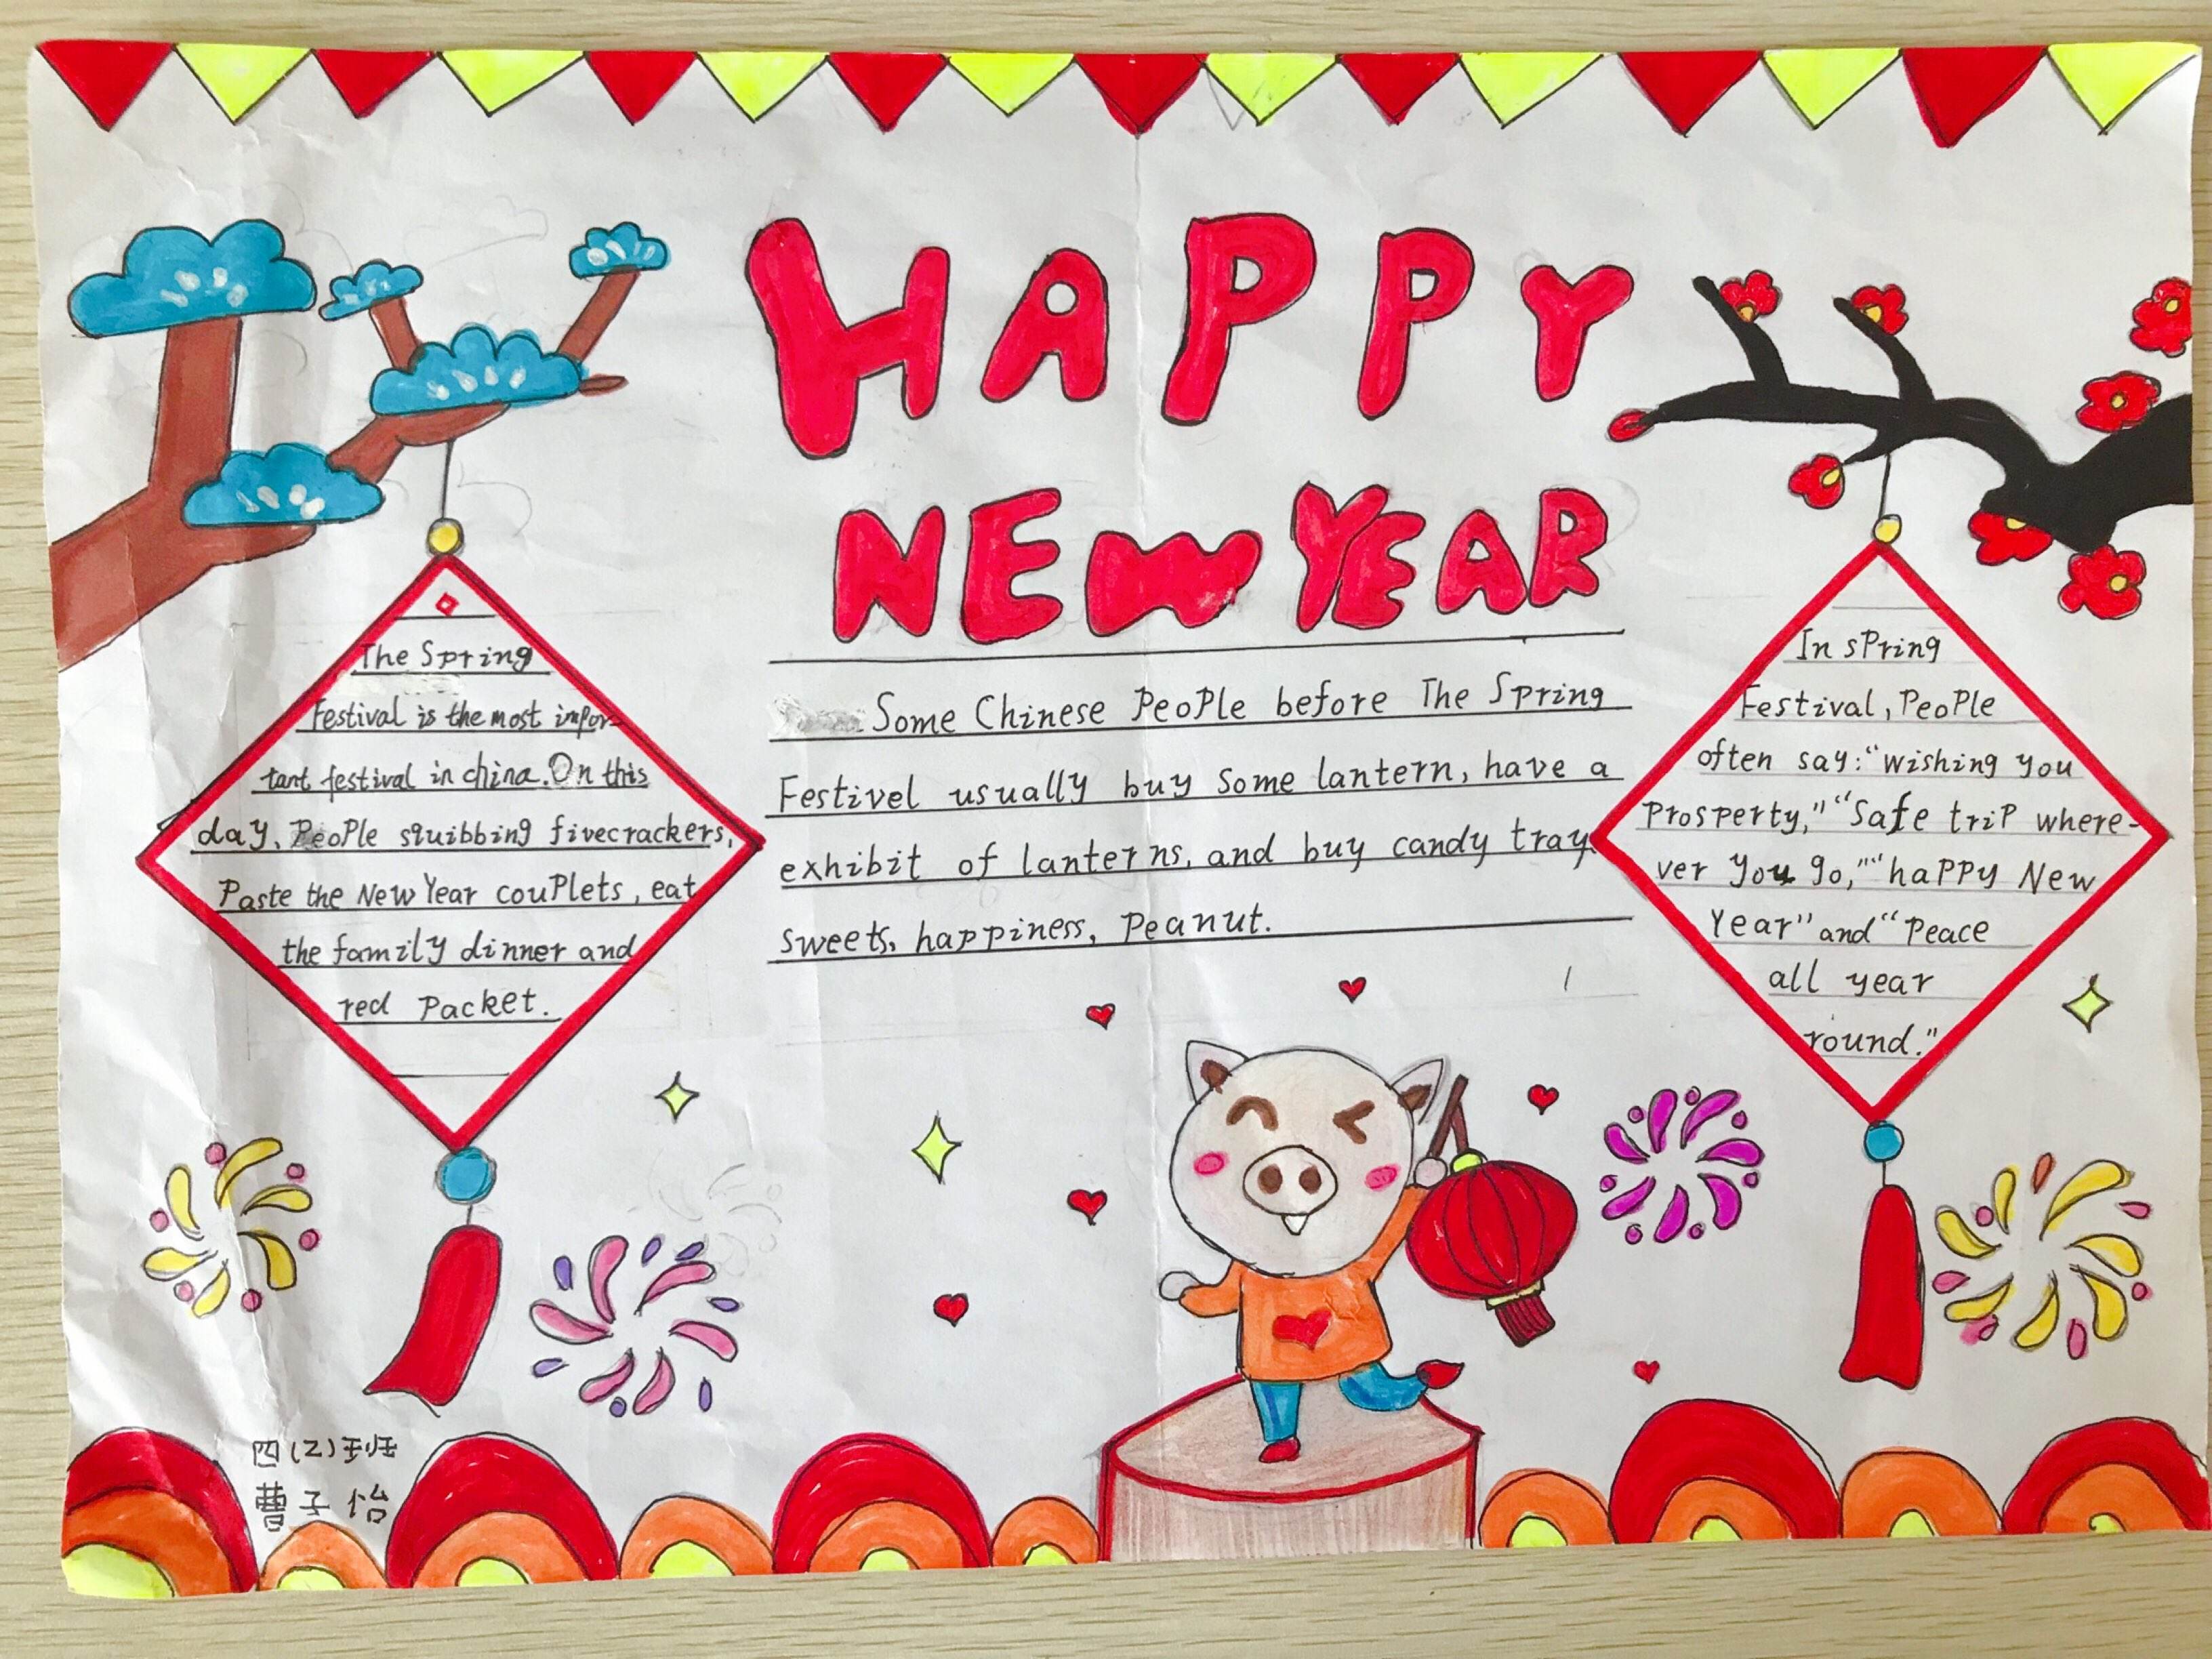 HAPPY
NEW YEAR
The Spring
Festival is the most impor-
tant festival in china. On this
day, People squibbing fivecrackers,
Paste the New Year couPlets, eat
the family dinner and
red Packet.
Some Chinese PeoPle before The Spring
Festivel usually buy Some lantern, have a
exhibit of lanterns, and buy candy tray
sweets, happiness, Peanut.
In sPring
Festival, PeoPle
often say: "wishing you
Prosperty," "Safe triP where-
ver you go," "haPPy New
Year" and "Peace
all year
round."
四(2)班
曹子怡